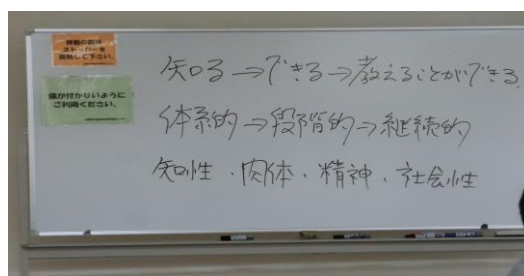 移動の際は
ストッパーを
解除して下さい。
傷が付かないように
ご利用ください。
知る→できる→教えることができる
体系的→段階的→継続的
知性・肉体・精神・社会性